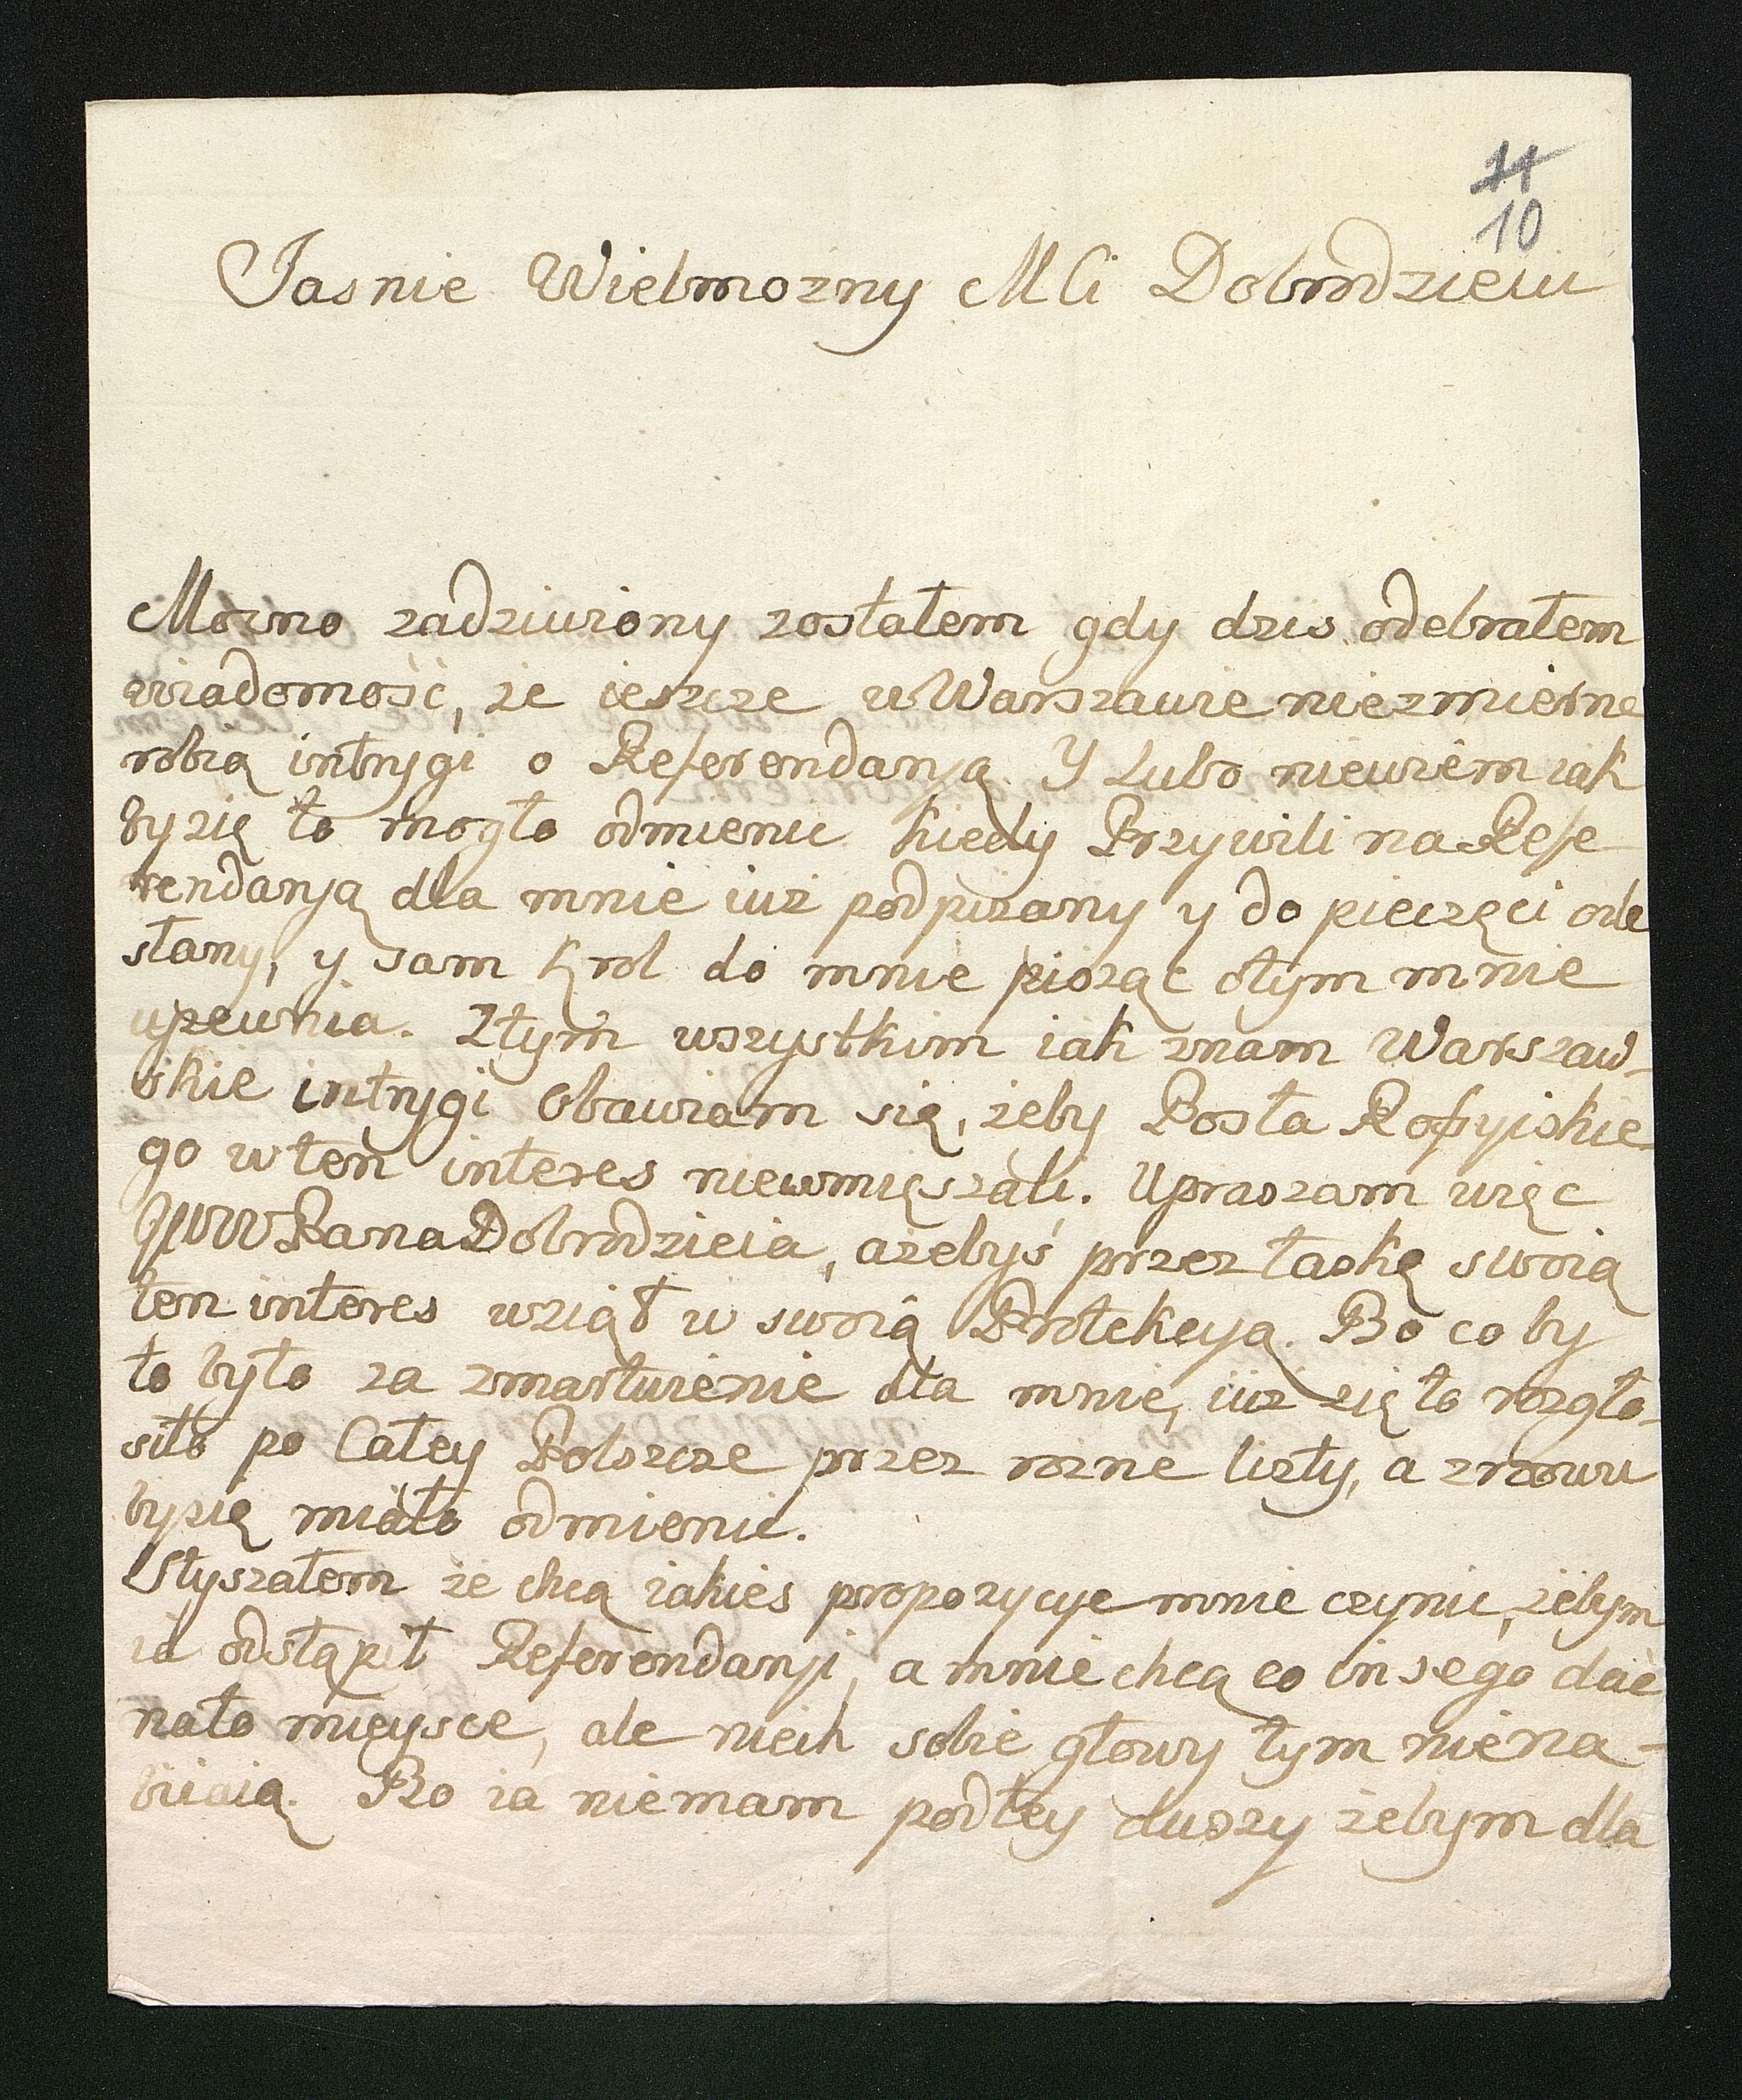 11
10
Jasnie Wielmozny MCi Dobrodzieiu
Mocno zadziwiony zostałem gdy dzis odebrałem
wiadomość, że ieszcze w Warszawie niezmierne
robią intrygi o Referendarją. Y lubo niewiem iak
bysię to mogło odmienic kiedy Przywili na Refe-
rendarją dla mnie iuż podpisany y do pieczęci ode
słany, y sam Krol do mnie pisząc otym mnie
upewnia. Ztym wszystkim iak znam Warszaw-
skie intrygi Obawiam się, żeby Posła Rossyiskie-
go w ten interes niewmięszali. Upraszam więc
JWW Pana Dobrodzieia, ażebyś przez łaskę swoią
ten interes wziął w swoią Protekcyą. Bo co by
to było za zmartwienie dla mnie, iuż się to rozgło-
siło po Całey Polszcze przez rozne listy, a znowu
bysię miało odmienic.
Słyszałem że chcą iakies propozycye mnie czynic, żebym
ia odstąpił Referendarji, a mnie chcą co inszego dać
nato mieysce, ale niech sobie głowy tym niena-
biiaią. Bo ia niemam podłey duszy żebym dla